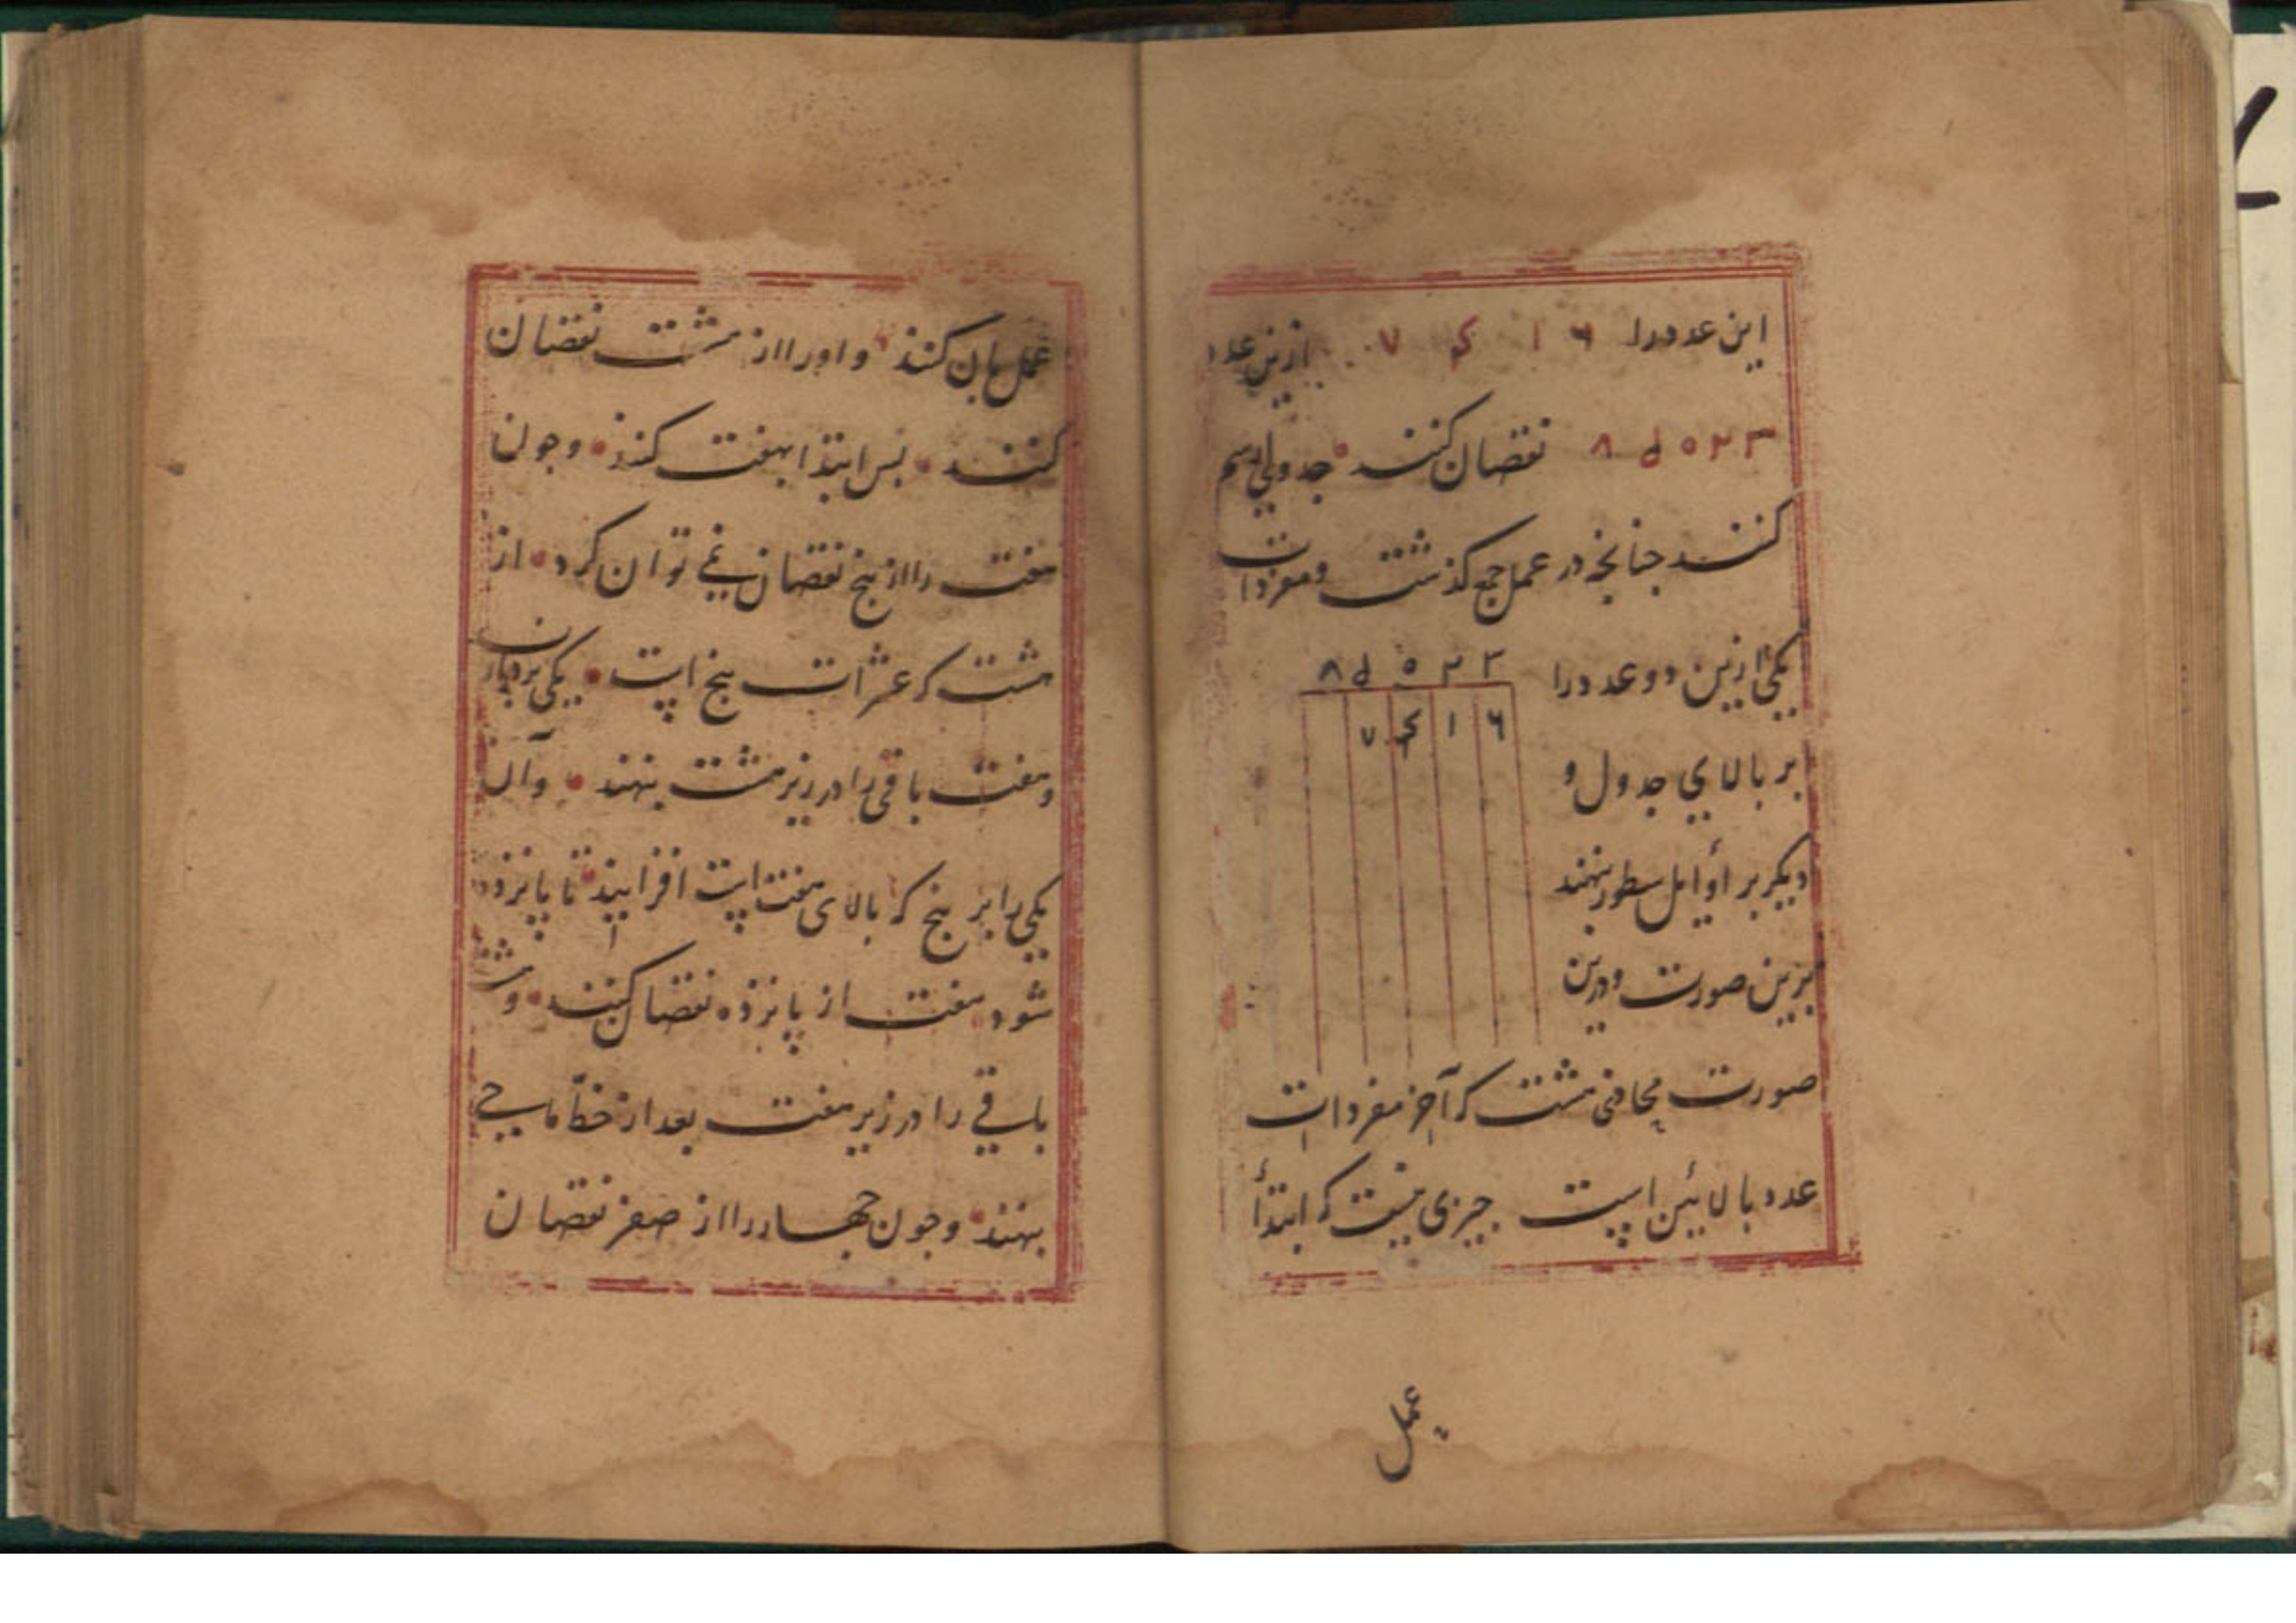 این عدد را ۶ ۱ ۴ ۷ ازین عدد
۳ ۲ ۵ ۸ نقصان کنند جدولی رسم
کنند جنانجه در عمل جمع کذشت و مفردات
یکی ازین دو عدد را
بر بالای جدول و
دیکر بر اوایل سطور بنهند
برین صورت ودرین
۳ ۲ ۵ ۸
۶ ۱ ۴ ۷
صورت محاذی هشت که آخر مفردات
عدد بالائین است جیزی نیست که ابتدأ
عمل
عمل بان کنند و او را از هشت نقصان
کنند بس ابتدا بهفت کنند وجون
هفت را از بنج نقصان نمی توان کرد از
هشت که عشرات بنج است یکی بردارن
وهفت باقی را در زیر هشت بنهند وآن
یکی را بر بنج که بالای هفت است افزایند تا پانزده
شود هفت از پانزده نقصان کنند وهشت
باقی را در زیر هفت بعد از خط ماحی
بنهند وجون جهار را از صفر نقصان